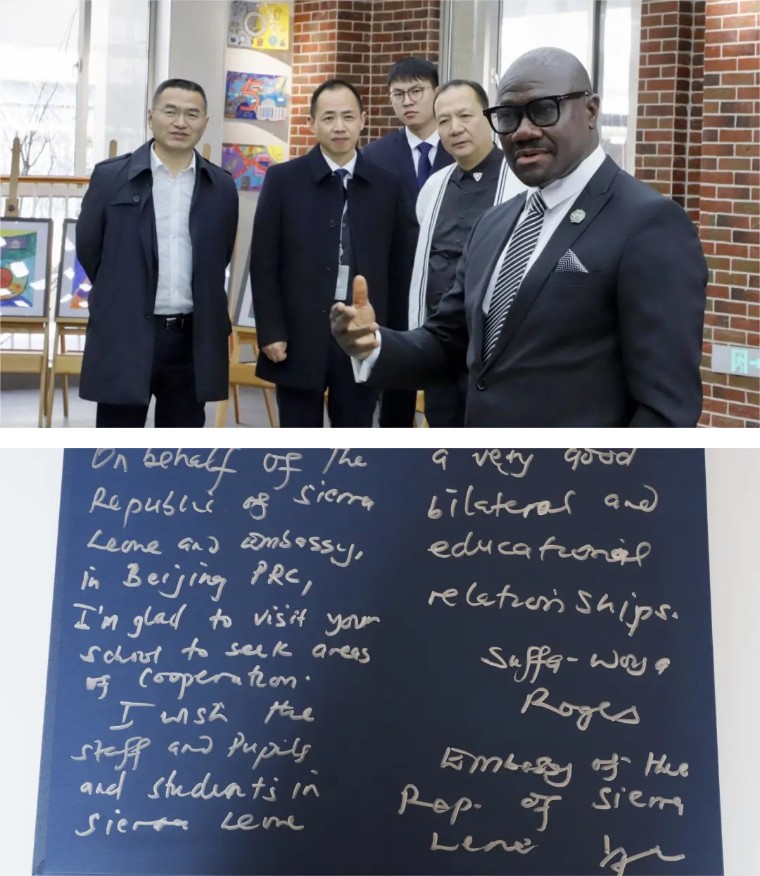 On behalf of the
Republic of Sierra
Leone and Embassy,
in Beijing PRC,
I'm glad to visit your
school to seek areas
of Cooperation.
I wish the
staff and Pupils
and students in
Sierra Leone
a very good
bilateral and
educational
relationships.
Suffa-Woya
Roges
Embassy of the
Rep. of Sierra
Leone